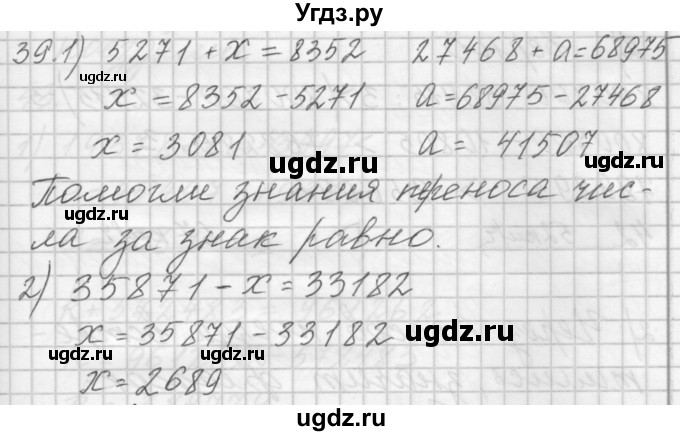 Угдз.ру
39.1) 5271 + x = 8352 27468 + a = 68975
ugdz.ru
x = 8352 - 5271 a = 68975 - 27468
x = 3081 a = 41507
ugdz.ru ugdz.ru
Помогли знания переноса чис-
ugdz.ru
ла за знак равно.
2) 35871 - x = 33182
x = 35871 - 33182
ugdz.ru ugdz.ru
x = 2689
ugdz.ru